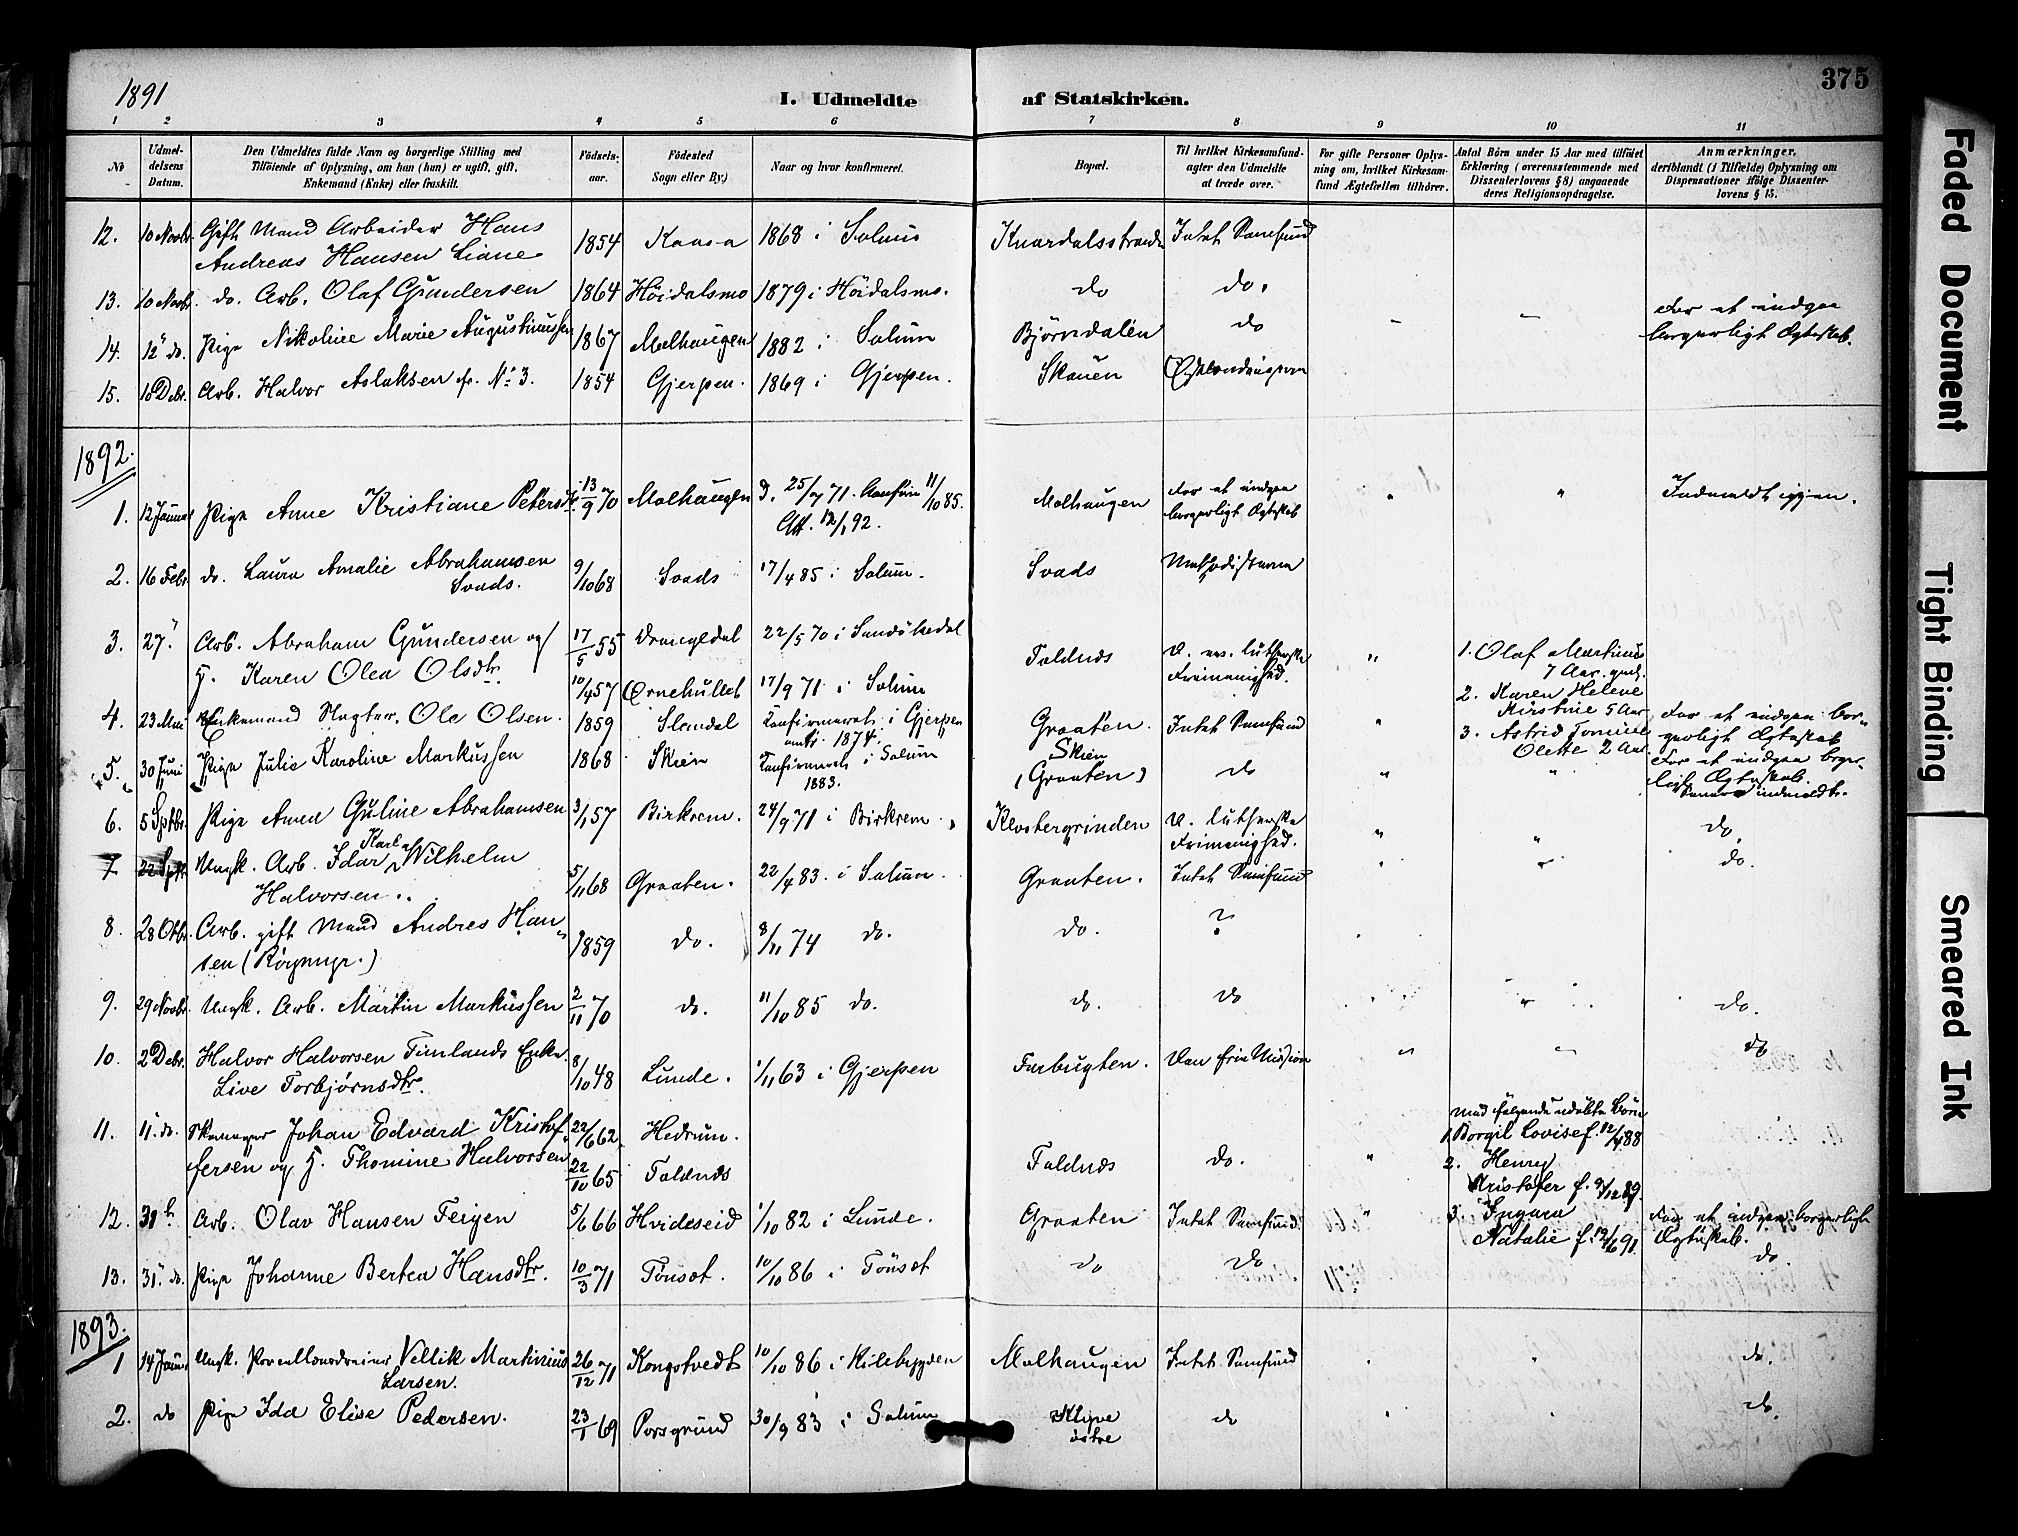 1891
I. Udmeldte af Statskirken.
375
1 2 3 4 5 6 7 8 9 10 11
No
Udmel-
delsens
Datum.
Den Udmeldtes fulde Navn og borgerlige Stilling med
Tilføiende af Oplysning, om han (hun) er ugift, gift,
Enkemand (Enke) eller fraskilt.
Födsels-
aar.
Födested
Sogn eller By.)
Naar og hvor konfirmeret.
Bopæl.
Til hvilket Kirkesamfund-
agter den Udmeldte
at træde over.
For gifte Personer Oplys-
ning om, hvilket Kirkesam-
fund Ægtefællen tilhörer.
Antal Börn under 15 Aar med tilföiet
Erklæring (overensstemmende med
Dissenterlovens § 8) angaaende
deres Religionsopdragelse.
Anmærkninger,
deriblandt (i Tilfælde) Oplysning om
Dispensationer ifölge Dissenter-
lovens § 15.
12. 10 Novbr. Gift Mand Arbeider Hans
Andreas Hansen Liane 1854 1868 i Solum Knardalsstrand Intet Samfund
13. 10 Novbr. do. Arb. Olaf Gundersen 1864 Höidalsmo 1879 i Höidalsmo. do do.
14. 12 do. Pige Nikoline Marie Augustinussen 1867 Melhaugen 1882 i Solum Björndalen do
For at indgaa
borgerligt Ægteskab.
15. Arb. Halvor Aslaksen fr. No 3. 1854 Gjerpen. 1869 i Gjerpen. Skauen
1892.
1. 12 Januar Pige Anne Kristiane Petersdtr. 13/9 70 Molhaugen D. 25/ 71. Konfirm 11/10 85.
Att. 12/1 92.
Molhaugen For at indgaa
borgerligt Ægteskab " " Indmeldt igjen.
2. 16 Febr. do. Laura Amalie Abrahamsen
Svads. 9/10 68 Svads 17/4 85 i Solum. Svads Methodisterne
3. 27. Arb. Abraham Gundersen og 17/5 55 Drangedal 22/5 70 i Sandökedal
H. Karen Olea Olsdtr. 10/4 57 Ørnehullet 17/9 71 i Solum
Foldnes D. ev. lutherske
Frimenighed. "
1. Olaf Martinus
7 Aar.
2. Karen Helene
Kirstine 5 Aar
3. Astrid Tomine
Olette 2 Aar
4. 23 Mai Enkemand Slagter. Ole Olsen. 1859 Slemdal Konfirmeret i Gjerpen
1874. Graaten. Intet Samfund "
For at indgaa bor-
gerligt Ægteskab
5. 30 Juni Pige Julie Karoline Markussen 1868 Skien Konfirmeret i Solum
1883. Skien
(Graaten) do " "
For at indgaa borger-
ligt Ægteskab.
Senere indmeldt.
6. 5 Sptbr. Pige Anna Guline Abrahamsen 3/1 57 Birkrem. 24/9 71 i Birkrem. Klostergrinden D. lutherske
Frimenighed. " " do.
7. 22 Sptbr. Ungk. Arb. Idar Karl Wilhelm
Halvorsen. 5/11 68 Graaten. 22/4 83. i Solum. Graaten. Intet Samfund " " do.
8. 28 Otbr. Arb. gift Mand Andres Han-
sen (Röimyr.) 1859 do. 8/11 74 do. do. ?
9. 29 Novbr. Ungk. Arb. Martin Markussen 2/11 70 do. 11/10 85 do. do. do " do.
10. 2 Debr. Halvor Halvorsen Timlands Enke
Live Torbjørnsdtr. 8/10 48 Lunde. 1/11 63 i Gjerpen Farbugten. Den frie Mission " " do
11. 11. do. Skomager Johan Edvard Kristof-
fersen og H. Thomine Halvorsen 22/6 62 Hedrum.
22/10 65 Foldnes
Foldnes do. "
med følgende udøbte Børn
1. Borgil Lovise f. 12/4 88
2. Henry
Kristofer f. 9/12 89.
3. Ingara
Natalie f. 12/6 91.
12. 31 Arb. Olav Hansen Feigen 5/6 66 Hvideseid 1/10 82 i Lunde. Graaten Intet Samfund. "
For at indgaa borgerligt
Ægteskab.
13. 31. do. Pige Johanne Berten Hansdtr. 10/3 71 Tönset. 10/10 86 i Tönset do do do.
1893.
1 14 Januar Ungk. Porcellænsdreier Vellik Martinius
Larsen. 26/12 71 Kongstvedt 10/10 86 i Kilebygden Molhaugen Intet Samfund do.
2. do Pige Ida Elise Pedersen. 23/1 69 Porsgrund 30/9 83 i Solum Klyve
östre do do.
Faded Document
Tight Binding
Smeared Ink